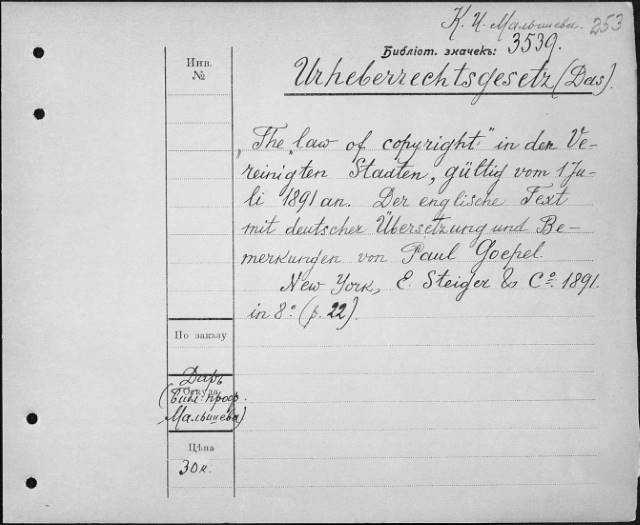 К. И. Малышева. 253
Библіот. значекъ: 3539.
Инв. №
Urheberrechtsgesetz (Das).
„The „law of copyright" in den Ve-
reinigten Staaten, gültig vom 1 Ju-
li 1891 an. Der englische Text
mit deutscher Übersetzung und Be-
merkungen von Paul Goepel.
New York, E. Steiger & Cº 1891.
in 8º (p. 22).
По заказу
Даръ
Откуда
(библ. проф.
Малышева)
Цѣна
30 к.